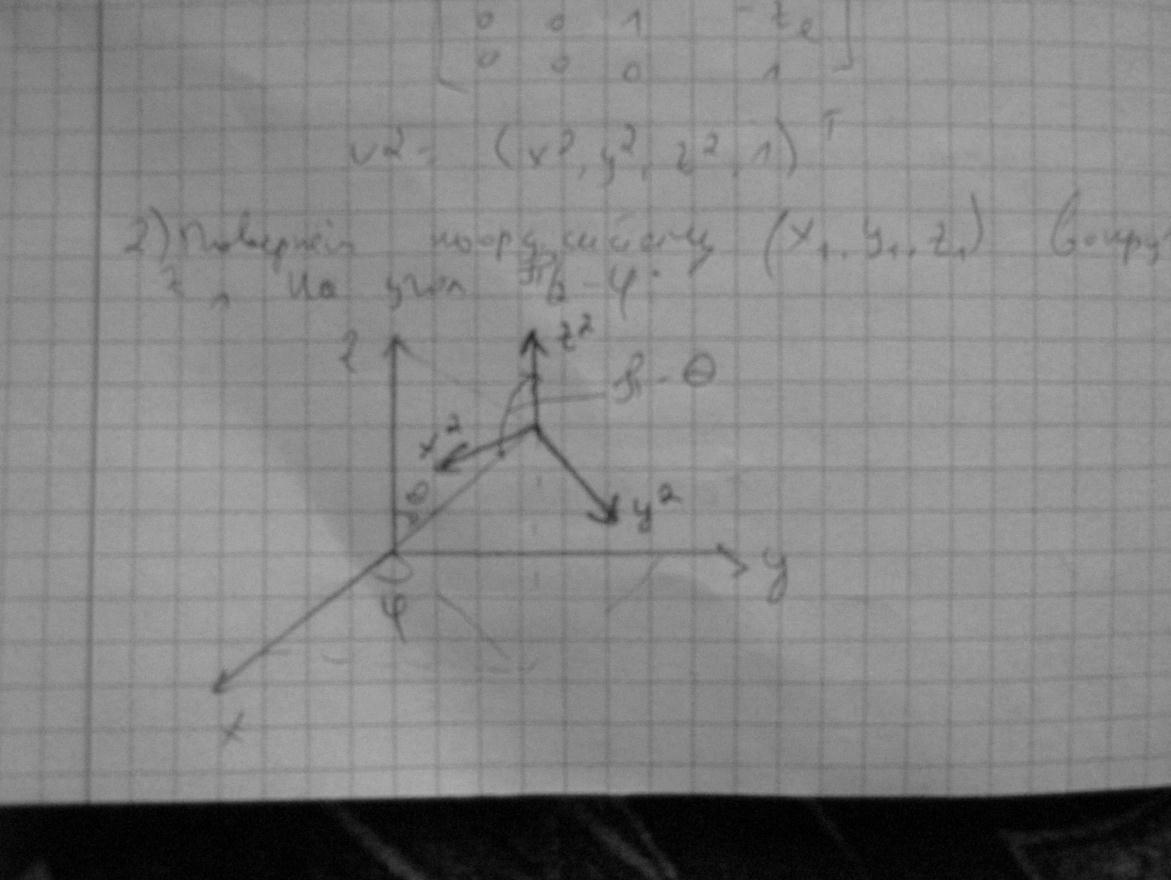 0 0 1 -z_e
0 0 0 1
v2 = (x², y², z², 1)ᵀ
2) Повернём коорд. систему (x₁, y₁, z₁) вокру
z₁ на угол π/2 - φ.
z
z²
π - θ
x²
θ
y²
y
φ
x